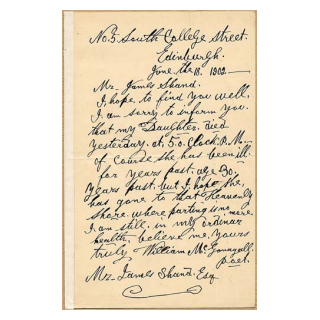 No. 5 South College Street.
Edinburgh.
June the 18. 1902
Mr. James Shand.
I hope to find you well.
I am sorry to inform you.
that my Daughter. Died
Yesterday. at, 5. O. Clock. P. M.
of Course she has been ill
for years past. age 30,
Years past. but I hope she,
has gone to that Heavenly
Shore where parting is no more.
I am still, in my ordinar
health, believe me, yours
truly, William McGonagall,
Poet.
Mr James Shand. Esq